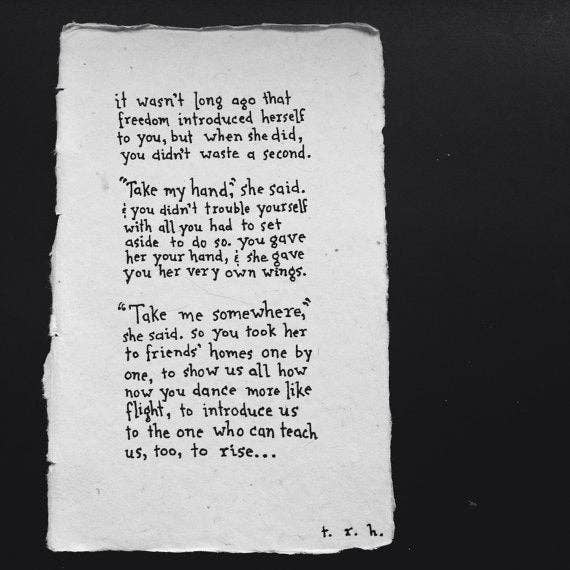 it wasn't long ago that
freedom introduced herself
to you, but when she did,
you didn't waste a second.
"Take my hand," she said.
& you didn't trouble yourself
with all you had to set
aside to do so. you gave
her your hand, & she gave
you her very own wings.
"Take me somewhere,"
she said. so you took her
to friends' homes one by
one, to show us all how
now you dance more like
flight, to introduce us
to the one who can teach
us, too, to rise...
t. r. h.